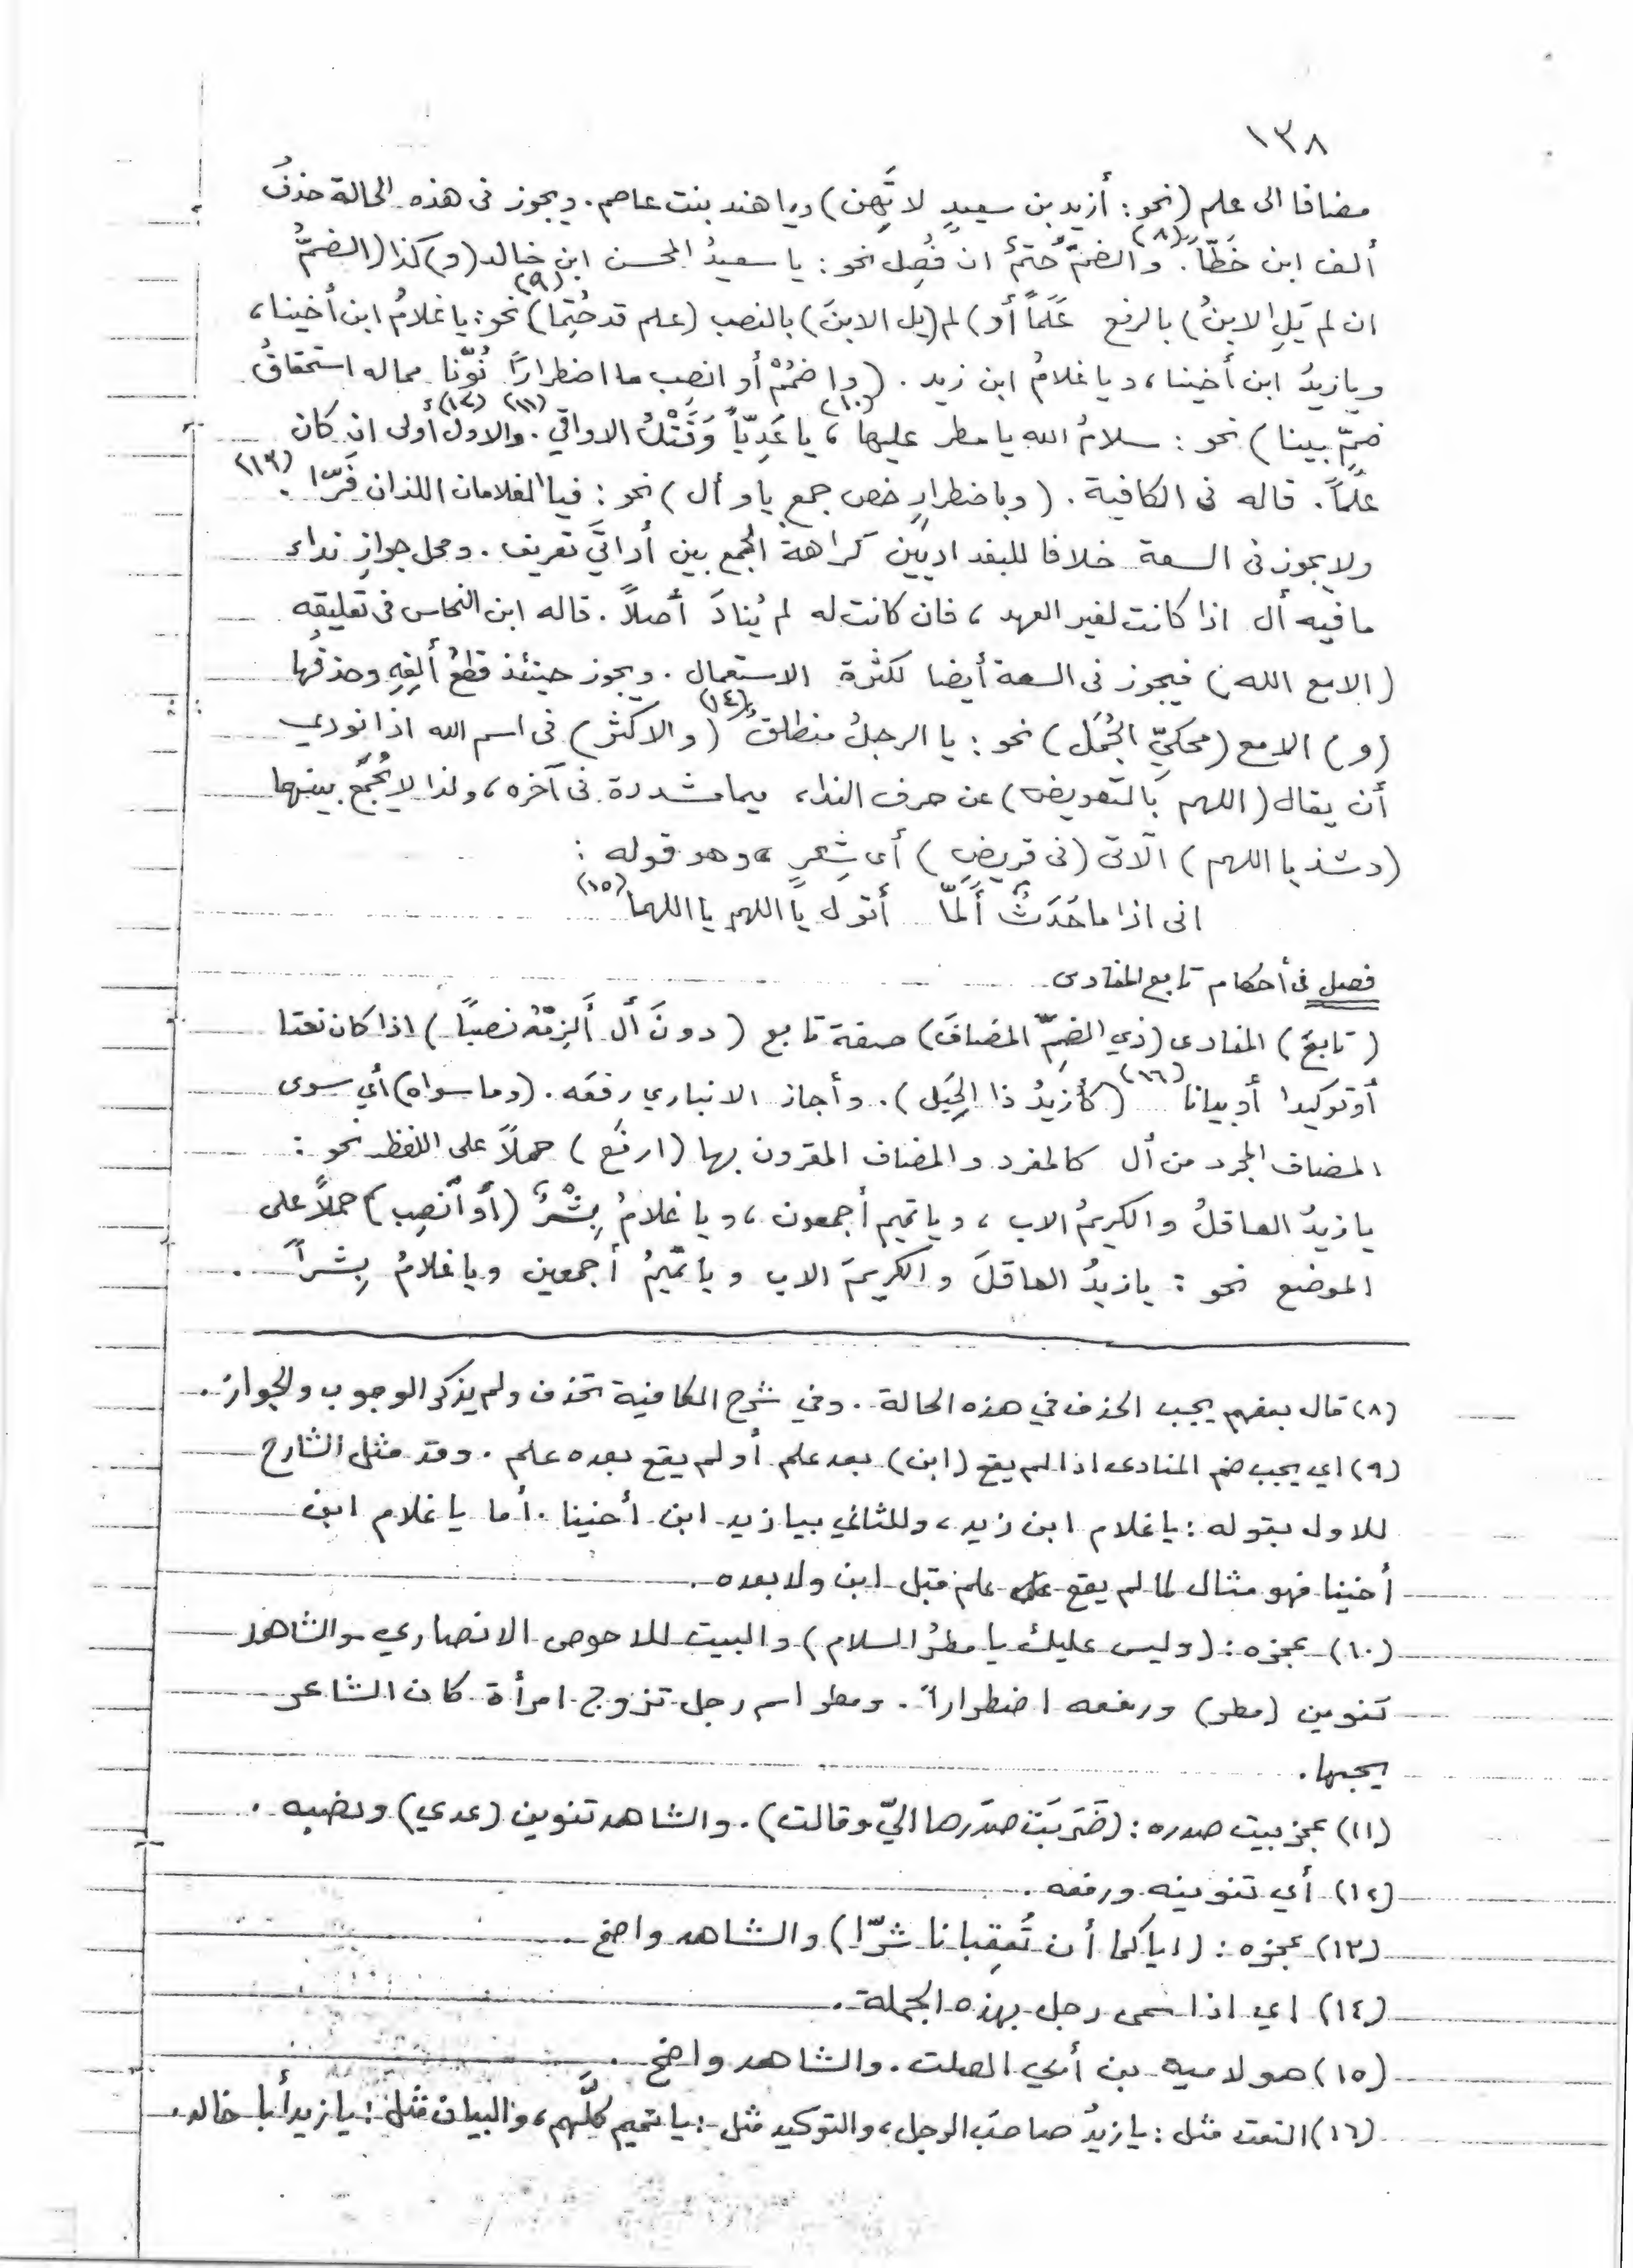 ١٣٨
مضافا الى علم (نحو: أزيد بن سعيدٍ لا تَهِن) ويا هند بنت عاصم. ويجوز فى هذه الحالة حذفُ
ألف ابن خَطّاً.(٨) والضمّ حُتمٌ ان فُصِل نحو: يا سعيدُ المحسن ابن خالد (و) كذا (الضمُّ
ان لم يَلِ الابنُ) بالرفع عَلَماً أو) لم (يل الابنَ) بالنصب (علم قد حُتِما)(٩) نحو: يا غلامُ ابن أخينا،
ويا زيدُ ابن أخينا، ويا غلامُ ابن زيد. (واضمُمْ أو انصِب ما اضطراراً نُوّنا مما له استحقاقُ
ضمٍّ بينا) نحو: سلامُ الله يا مطر عليها(١٠)، يا عَدِيّاً وَقَتْكَ الاواقي(١١). والاول(١٢) أولى ان كان
علَماً. قاله فى الكافية. (وباضطرارٍ خص جمع يا و أل) نحو: فيا الغلامان اللذان فَرّا(١٣).
ولا يجوز فى السعة خلافا للبغداديّين كراهة الجمع بين أداتَي تعريف. ومحل جوازِ نداء
ما فيه أل اذا كانت لغير العهد، فان كانت له لم يُنادَ أصلاً. قاله ابن النحاس فى تعليقه
(الا مع الله) فيجوز فى السعة أيضا لكثرة الاستعمال. ويجوز حينئذ قطعُ ألِفِهِ وحذفُها
(و) الا مع (محكيّ الجُمَل) نحو: يا الرجلُ منطلقٌ(١٤) (والاكثر) فى اسم الله اذا نودي
أن يقال (اللهم بالتعويض) عن حرف النداء ميما مشددة فى آخره، ولذا لا يُجمَع بينهما
(وشذ يا اللهم) الآتى (فى قريضِ) أى شِعرٍ، وهو قوله:
انى اذا ما حَدَثٌ أَلَمّا أقول يا اللهم يا اللهما(١٥)
فصل فى أحكام تابع المنادى
(تابعَ) المنادى (ذي الضمِّ المضافَ) صفة تابع (دونَ أل ألزِمْهُ نصباً) اذا كان نعتا
أو توكيدا أو بيانا(١٦) (كأزيدُ ذا الحِيَل). وأجاز الانباري رفعَه. (وما سواه) أي سوى
المضاف المجرد من أل كالمفرد والمضاف المقرون بها (ارفَع) حملاً على اللفظ نحو:
يا زيدُ العاقلُ والكريمُ الاب، ويا تميم أجمعون، ويا غلامُ بِشْرٌ (أو انصِب) حملاً على
الموضع نحو: يا زيدُ العاقلَ والكريمَ الاب ويا تميمُ أجمعين ويا غلامُ بِشراً.
(٨) قال بعضهم يجب الحذف في هذه الحالة. وفي شرح الكافية تحذف ولم يذكر الوجوب والجواز.
(٩) اي يجب ضم المنادى اذا لم يقع (ابن) بعد علم أو لم يقع بعده علم. وقد مثل الشارح
للاول بقوله: يا غلام ابن زيد، وللثاني بيا زيد ابن أخينا. أما يا غلام ابن
أخينا فهو مثال لما لم يقع علم قبل ابن ولا بعده.
(١٠) عجزه: (وليس عليك يا مطرُ السلام) والبيت للاحوص الانصاري والشاهد
تنوين (مطر) ورفعه اضطراراً. ومطر اسم رجل تزوج امرأة كان الشاعر
يحبها.
(١١) عجز بيت صدره: (ضَرَبَتْ صدَرها اليّ وقالت). والشاهد تنوين (عدي) ونصبه.
(١٢) أي تنوينه ورفعه.
(١٣) عجزه: (اياكما أن تُعقِبانا شرّا) والشاهد واضح
(١٤) اي اذا سمى رجل بهذه الجملة.
(١٥) هو لاميه بن أبي الصلت. والشاهد واضح.
(١٦) النعت مثل: يا زيدُ صاحبَ الرجل، والتوكيد مثل: يا تميم كلَّهم، والبيان مثل: يا زيد أبا خالد.